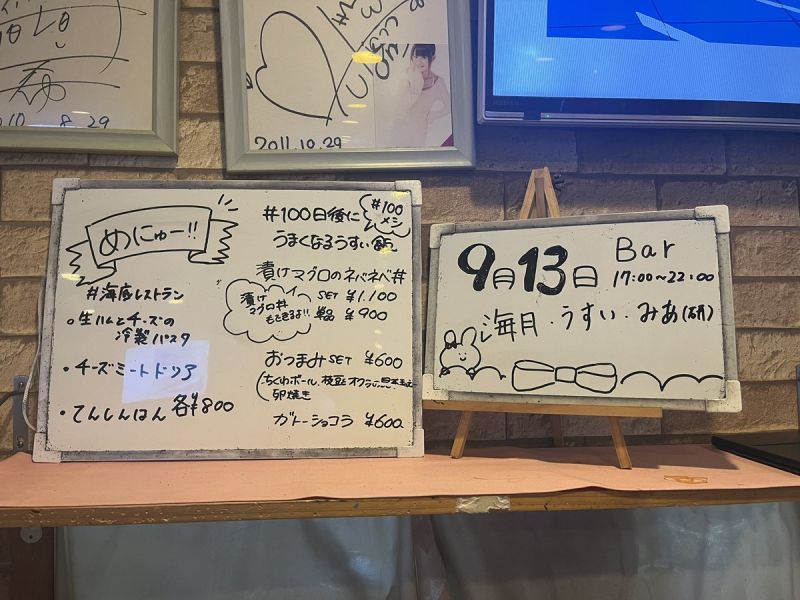 8.29
2011.10.29
めにゅー!!
#海底レストラン
・生ハムとチーズの
冷製パスタ
・チーズミートドリア
・てんしんはん 各¥800
#100日後に
うまくなるうすい飯
#100
メシ
漬けマグロのネバネバ丼
SET ¥1,100
単品 ¥900
漬け
マグロ丼
もできるよ!!
おつまみSET ¥600
(ちくわボール、枝豆とオクラの
卵焼き
ガトーショコラ ¥600
9月13日
Bar
17:00~22:00
海月・うすい・みあ(研)